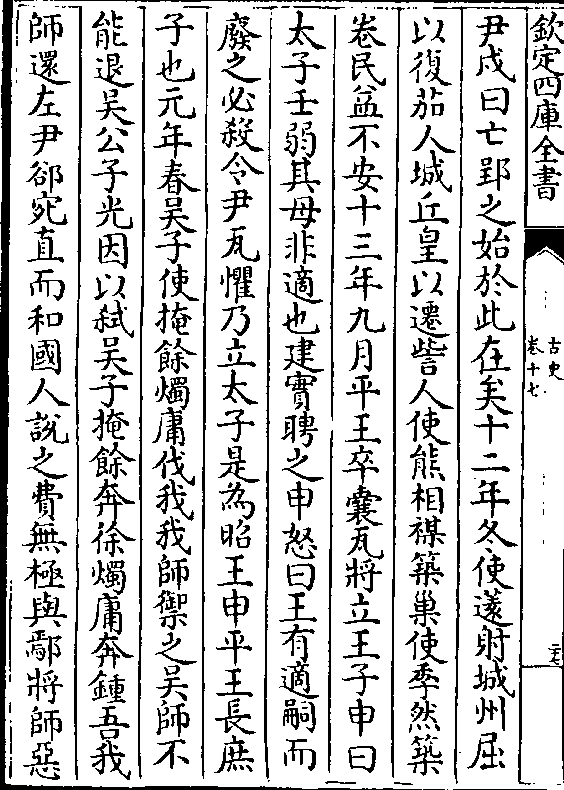 欽定四庫全書
古史
卷十七
二七
尹戌曰亡郢之始於此在矣十二年冬使薳射城州屈
以復茄人城丘皇以遷訾人使熊相禖築巢使季然築
卷民益不安十三年九月平王卒囊瓦將立王子申曰
太子壬弱其母非適也建實聘之申怒曰王有適嗣而
廢之必殺令尹瓦懼乃立太子是為昭王申平王長庶
子也元年春吳子使掩餘燭庸伐我我師禦之吳師不
能退吳公子光因以弑吳子掩餘奔徐燭庸奔鍾吾我
師還左尹郤宛直而和國人說之費無極與鄢將師惡